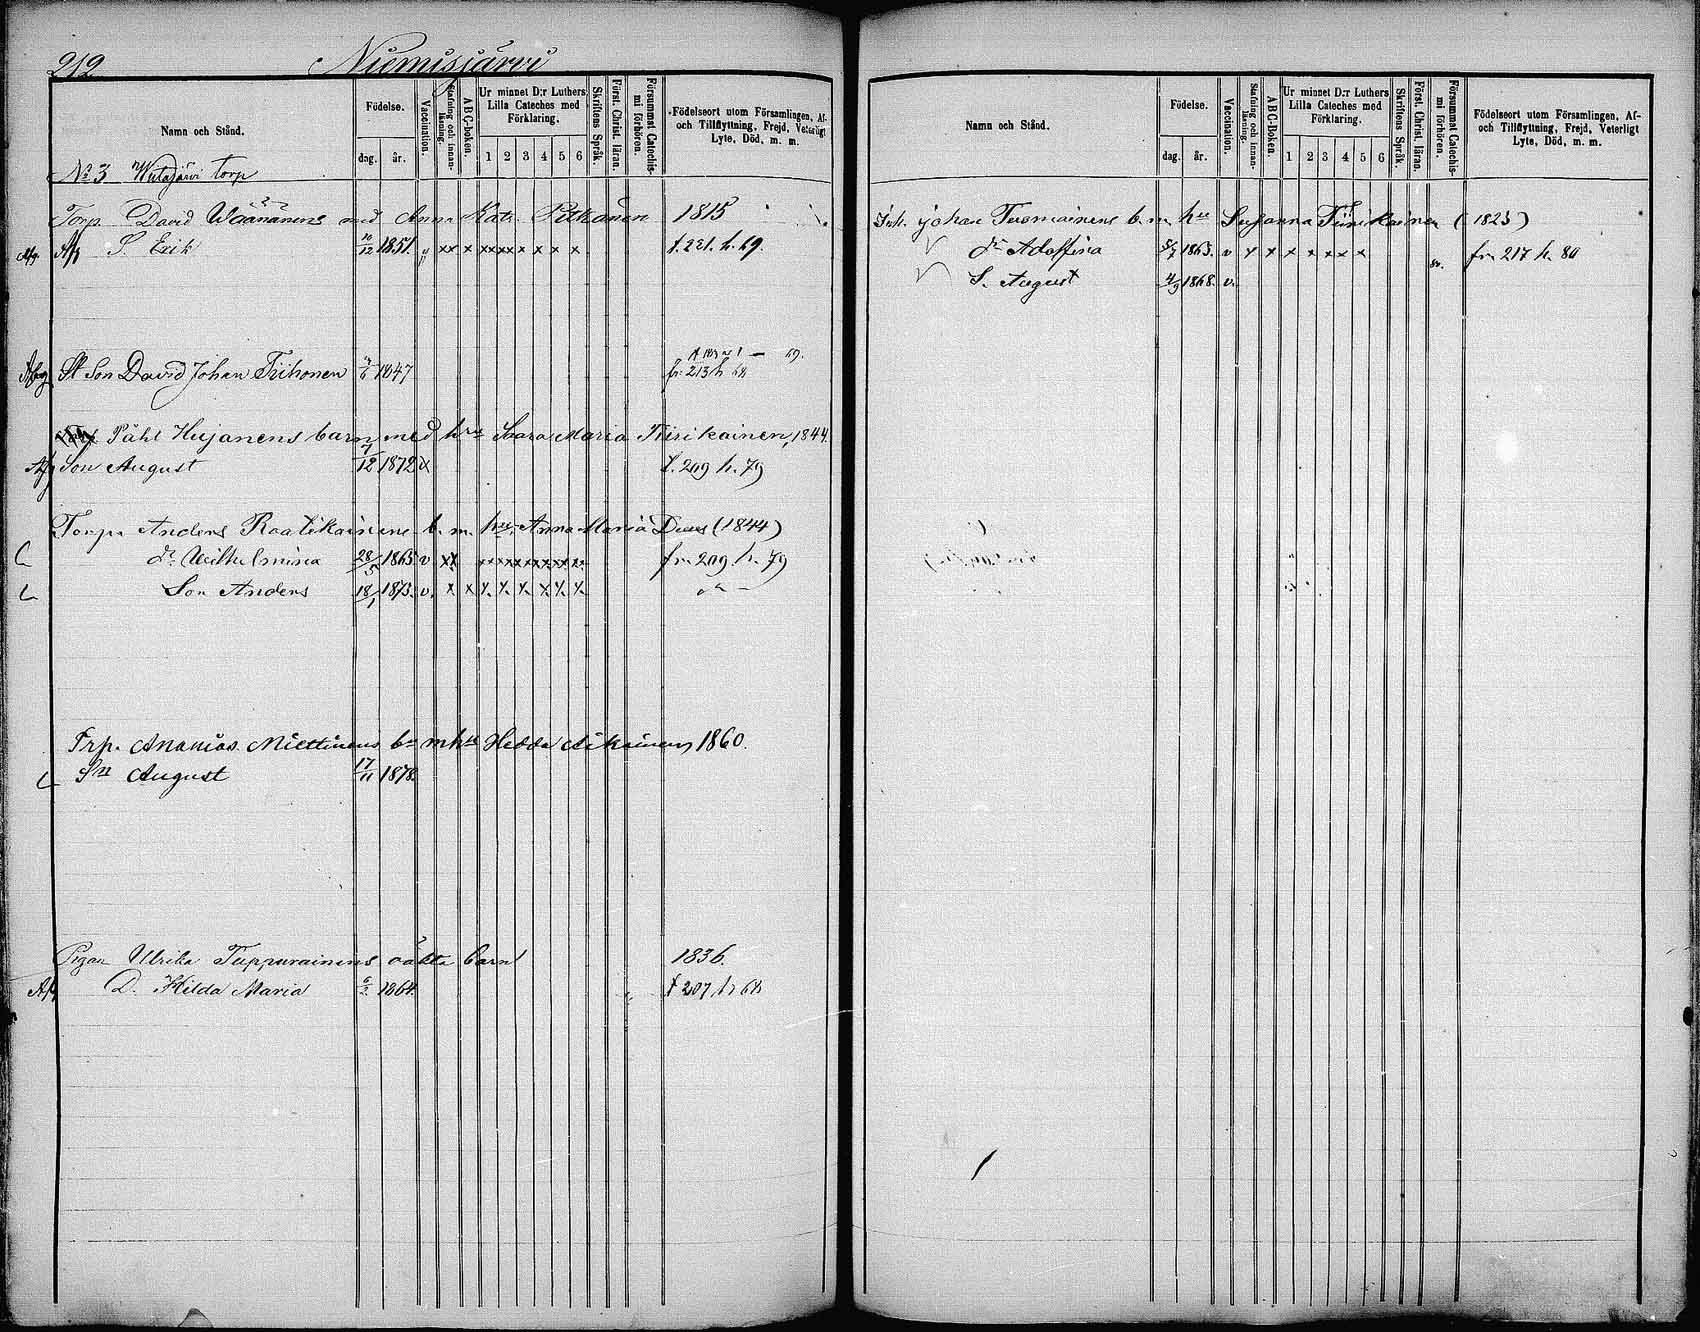 212 Niemisjärvi
Namn och Stånd.
Födelse.
dag. år.
Vaccination.
Stafning och innanläsning.
ABC-boken.
Ur minnet D:r Luthers Lilla Cateches med Förklaring.
1 2 3 4 5 6
Skriftens Språk.
Först. Christ. läran.
Försummat Catechismi förhören.
Födelseort utom Församlingen, Af- och Tillflyttning, Frejd, Veterligt Lyte, Död, m. m.
No 3 torp
Torp. David Wäänänens med Anna Kat. Pitkänen 1815
Afg S. Erik 1851 x x x x x x x x x x t. 221. h. 69.
St Son David Johan Tiihonen 1847 fr. 213 h 68
Påhl Hujanens barn med hru Saara Maria Kiiskikainen, 1844.
Afg Son August 7/12 1872 t. 209 h. 79
Torp. Anders Raatikainens b. m. hru Anna Maria (1844)
dr Wilhelmina 28/5 1863 v x x x x x x x x x x fr. 209 h. 79
Son Anders 18/1 1873. v. x x x x x x x x
Trp. Ananias Miettinens bn m hru Hedda Aikainen 1860.
Sn August 17/11 1878.
Pigan Ulrika Tuppurainens oäkta barn 1836.
Afg D. Hilda Maria 6/2 1864. t 207 h 68
Namn och Stånd.
Födelse.
dag. år.
Vaccination.
Stafning och innanläsning.
ABC-Boken.
Ur minnet D:r Luthers Lilla Cateches med Förklaring.
1 2 3 4 5 6
Skriftens Språk.
Först. Christ. läran.
Försummat Catechismi förhören.
Födelseort utom Församlingen, Af- och Tillflyttning, Frejd, Veterligt Lyte, Död, m. m.
Inh. Johan Tuomainens b. m. hru Susanna (1825)
dr Adolfina 1863. v x x x x x x x 80. fr. 217 h. 80
S. August 4/9 1868. v.